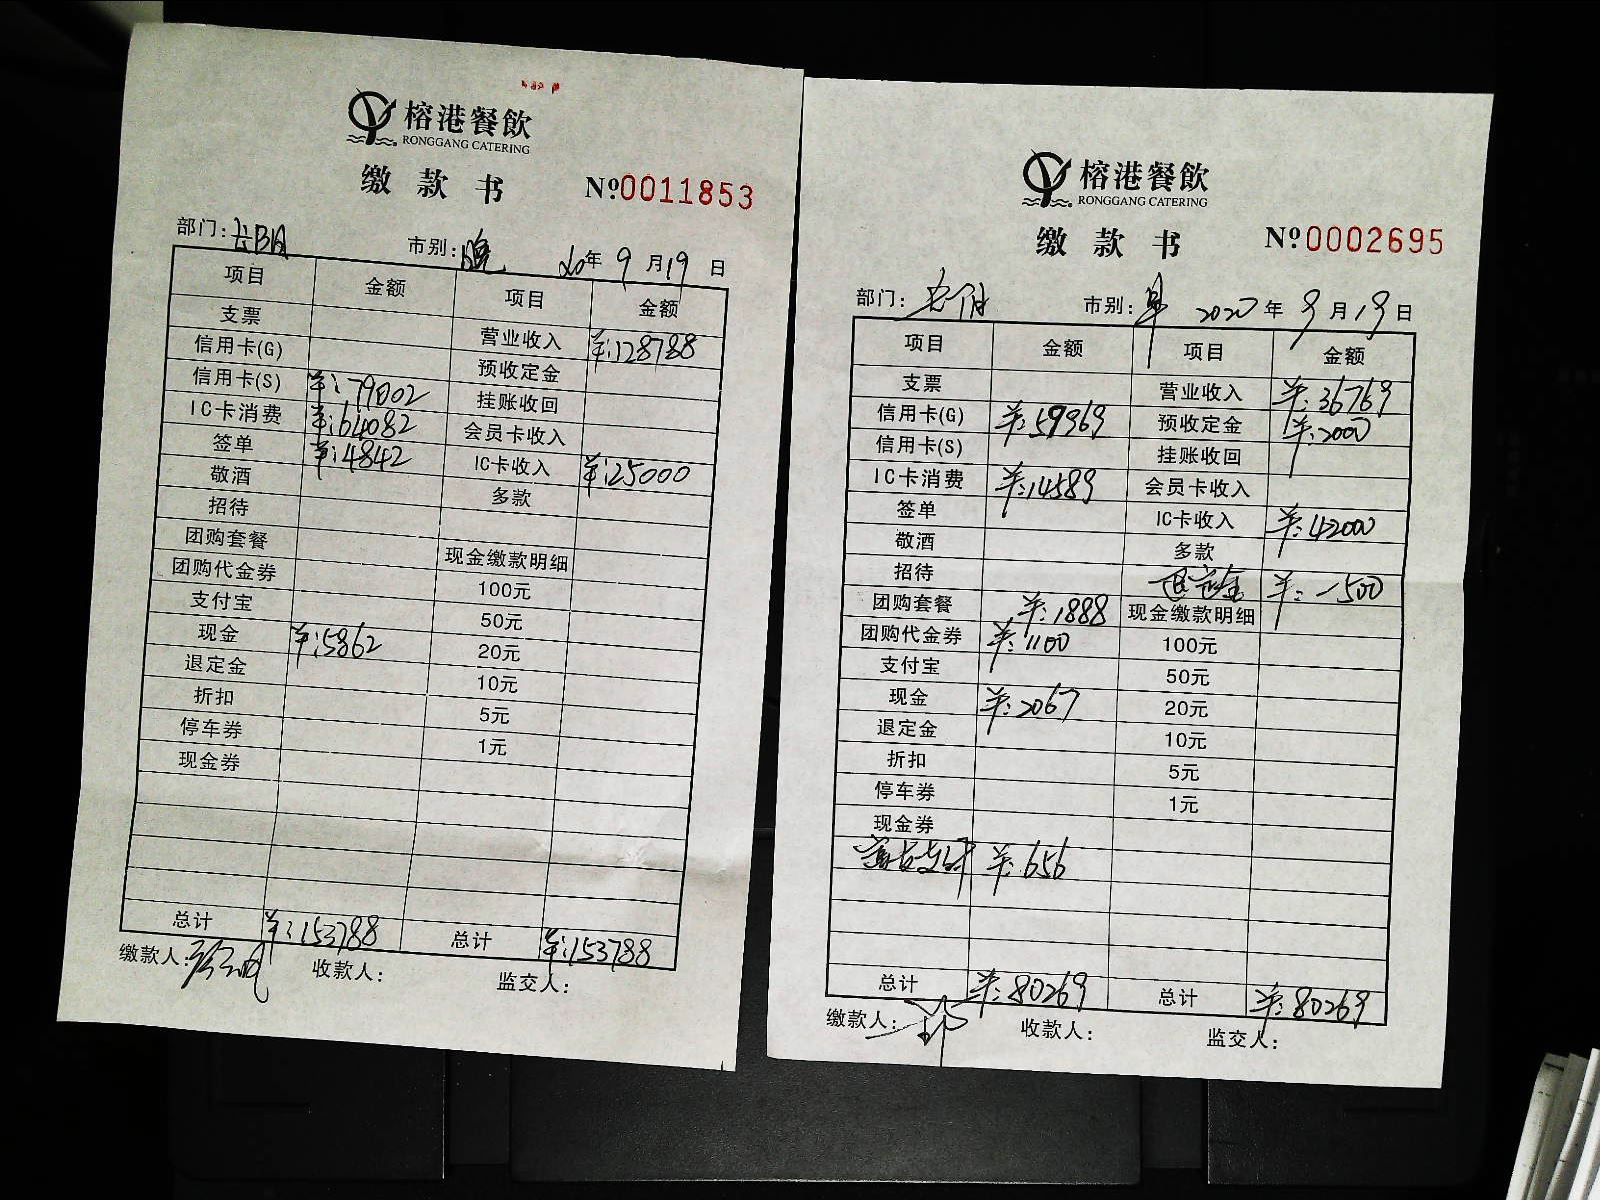 榕港餐飲
RONGGANG CATERING
缴款书 №0011853
部门: 市别:晚 20年9月19日
项目 金额 项目 金额
支票 营业收入 ¥:128788
信用卡(G) 预收定金
信用卡(S) ¥:79002 挂账收回
IC卡消费 ¥:64082 会员卡收入
签单 ¥:4842 IC卡收入 ¥:25000
敬酒 多款
招待
团购套餐 现金缴款明细
团购代金券 100元
支付宝 50元
现金 ¥:5862 20元
退定金 10元
折扣 5元
停车券 1元
现金券
总计 ¥:153788 总计 ¥:153788
缴款人: 收款人: 监交人:
榕港餐飲
RONGGANG CATERING
缴款书 №0002695
部门: 市别:早 2020年9月19日
项目 金额 项目 金额
支票 营业收入 ¥:36769
信用卡(G) ¥:59969 预收定金 ¥:2000
信用卡(S) 挂账收回
IC卡消费 ¥:14589 会员卡收入
签单 IC卡收入 ¥:42000
敬酒 多款
招待 退定金 ¥:-500
团购套餐 ¥:1888 现金缴款明细
团购代金券 ¥:1100 100元
支付宝 50元
现金 ¥:2067 20元
退定金 10元
折扣 5元
停车券 1元
现金券
¥:656
总计 ¥:80269 总计 ¥:80269
缴款人: 收款人: 监交人: